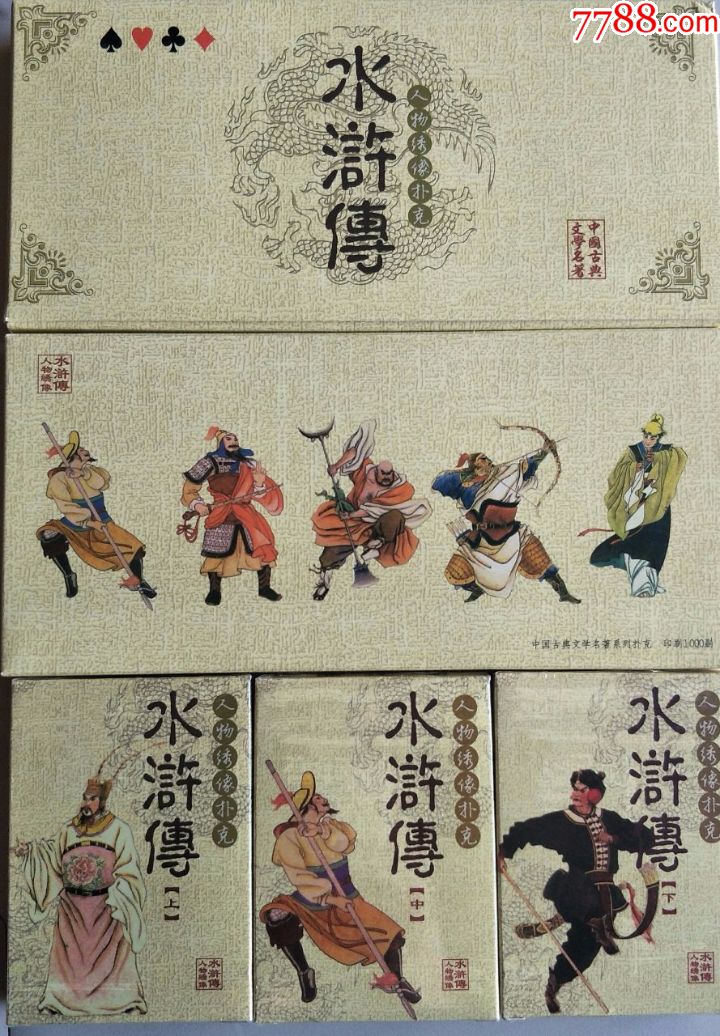 7788.com
水滸傳
人物绣像扑克
中國古典
文學名著
水滸傳
人物繡像
中国古典文学名著系列扑克 印刷1000副
人物绣像扑克
水滸傳
【上】
水滸傳
人物繡像
人物绣像扑克
水滸傳
【中】
水滸傳
人物繡像
人物绣像扑克
水滸傳
【下】
水滸傳
人物繡像